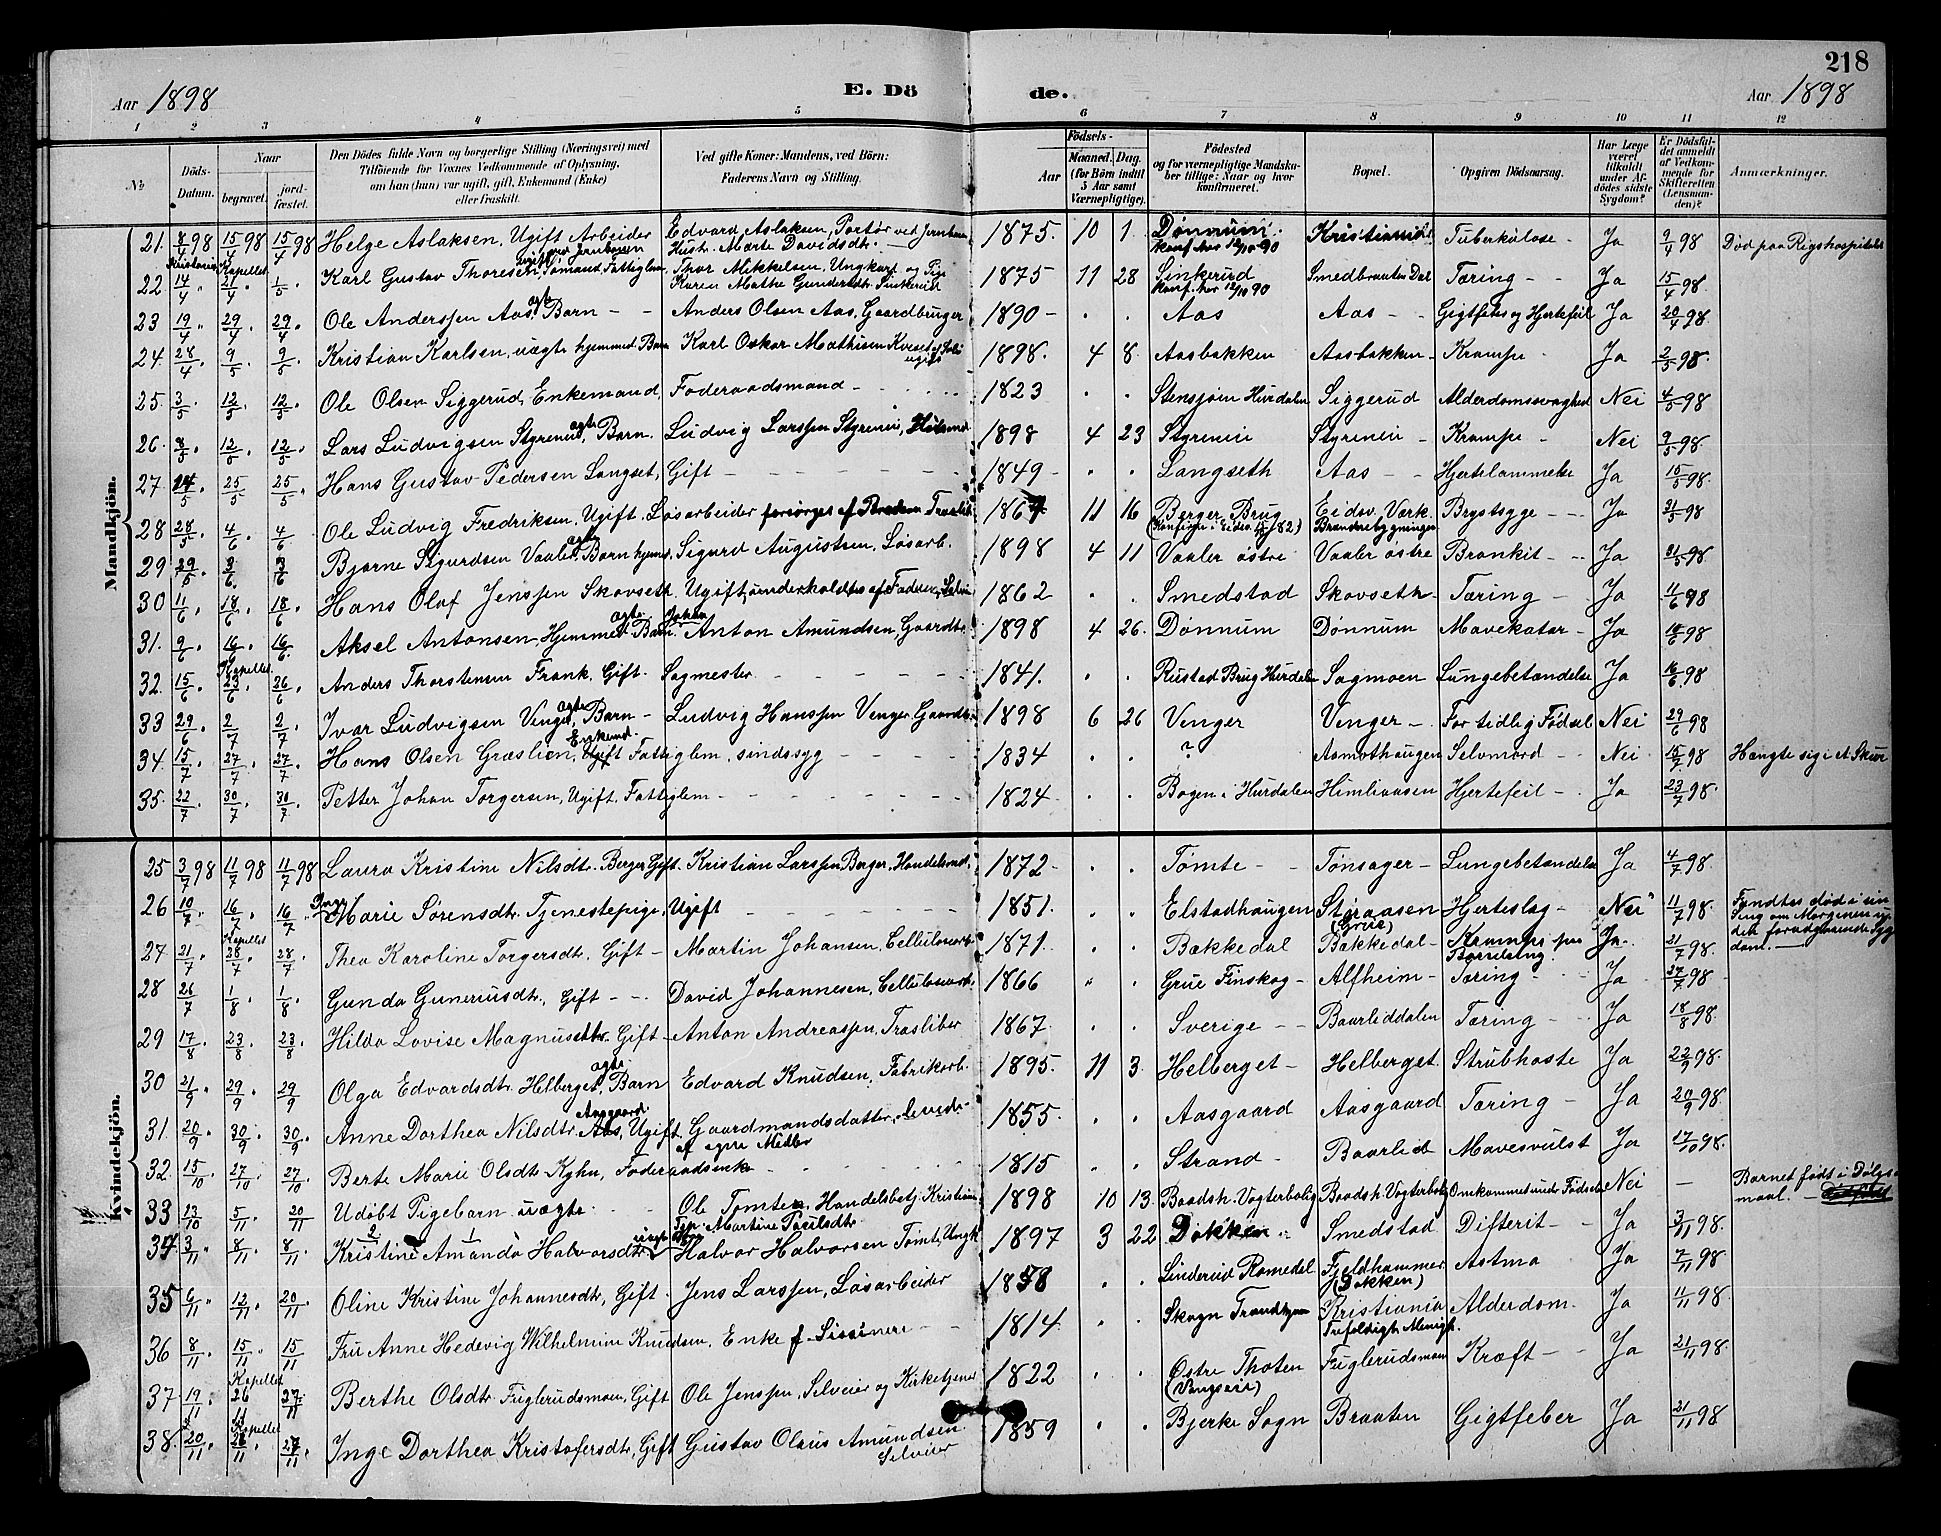 218
Aar 1898 E. Dö de. Aar 1898
1 2 3 4 5 6 7 8 9 10 11 12
№ Döds-Datum. Naar begravet. jordfæstet. Den Dödes fulde Navn og borgerlige Stilling (Næringsvei) med Tilföiende for Voxnes Vedkommende af Oplysning, om han (hun) var ugift, gift, Enkemand (Enke) eller fraskilt. Ved gifte Koner: Mandens, ved Börn: Faderens Navn og Stilling. Födsels- Aar Maaned. Dag. (for Börn indtil 5 Aar samt Værnepligtige). Födested og for værnepligtige Mandskaber tillige: Naar og hvor konfirmeret. Bopæl. Opgiven Dödsaarsag. Har Læge været tilkaldt under Afdödes sidste Sygdom? Er Dödsfaldet anmeldt af Vedkommende for Skifteretten (Lensmanden)? Anmærkninger.
Mandkjön.
21. 8/4 98 15/4 98 15/4 98 Helge Aslaksen, Ugift Arbeider Edvard Aslaksen, Portør ved Jernbanen Hustr. Marte Davidsdtr. 1875. 10 1. Dønnum. konf. her 12/10 90 Kristiania Tuberkulose Ja 9/4 98 Død paa Rigshospitalet
22. 14/4 Kapellet 21/4 1/5 Karl Gustav Thoresen, Fattiglem, Thor Mikkelsen, Ungkarl og Pige Karen Mathe Gundersdtr. Sinkerud 1875 11 28 Sinkerud konf. her 12/10 90 Smedbraaten Dal Tæring Ja 15/4 98.
23 19/4 29/4 29/4 Ole Anderssen Aas, ægte Barn Anders Olsen Aas, Gaardbruger 1890 Aas Aas Gigtfeber og Hjertefeil Ja 20/4 98
24. 28/4 9/5 9/5 Kristian Karlsen, uægte hjemmed. Barn Karl Oskar Mathisen ugift 1898. 4 8. Aasbakken Aasbakken Krampe Ja 2/5 98.
25. 3/5 12/5 12/5 Ole Olsen Siggerud, Enkemand, Føderaadsmand 1823 Stensjøen Hurdalen Siggerud Alderdomssvaghed Nei 4/5 98
26. 8/5 12/5 12/5 Lars Ludvigsen Styreniei, ægte Barn. Ludvig Larssen Styreniei, Husmd 1898 4 23 Styreniei Styreniei Krampe Nei 9/5 98
27. 14/5 25/5 25/5 Hans Gustav Pedersen Langset, Gift 1849 Langseth Aas Hjertelammelse Ja 15/5 98.
28 28/5 4/6 4/6 Ole Ludvig Fredriksen, Ugift, Løsarbeider 1867 11 16 Berger Brug Eidsv. Værk. Brandrebygningen Brystsyge Ja 31/5 98
29 29/5 3/6 3/6 Bjarne Sigurdsen Vaaler, ægte Barn hjemd. Sigurd Augustsen, Løsarb. 1898 4 11 Vaaler østre Vaaler østre Bronkit Ja 31/5 98.
30 11/6 18/6 18/6 Hans Olaf Jenssen Skovseth, Ugift, underholdtes af Faderen, Selvei 1862 Smedstad Skovseth Tæring Ja 11/6 98
31. 9/6 16/6 16/6 Aksel Antonsen, Hjemmed. ægte Barn. Anton Amundsen, Gaardbr. 1898 4 26. Dønnum Dønnum Mavekatar Ja 10/6 98
32. 15/6 Kapellet 23/6 26/6 Anders Thorstensen Frank, Gift. Sagmester 1841. Rustad Brug Hurdalen Sagmoen Lungebetændelse Ja 16/6 98
33 29/6 2/7 2/7 Ivar Ludvigsen Venger, ægte Barn Ludvig Hanssen Venger, Gaardbr. 1898 6 26 Venger Venger For tidlig Fødsel Nei 29/6 98
34. 15/7 27/7 27/7 Hans Olsen Græslien, Enkemd. Fattiglem, sindssyg 1834 ? Asmothaugen Selvmord Nei 15/7 98 Hængte sig i et Skur
35. 22/7 30/7 30/7 Petter Johan Torgersen, Ugift, Fattiglem 1824 Bogen i Hurdalen Himliaasen Hjertefeil Ja 23/7 98.
Kvindekjön.
25 3/7 98 11/7 98 11/7 98 Laura Kristine Nilsdtr. Berger, Gift. Kristian Larssen Berger, Handelsmd. 1872 Tømte Tønsager Lungebetændelse Ja 4/7 98
26 10/7 16/7 16/7 Inge Marie Sørensdtr. Tjenestepige, Ugift 1851. Elstadhaugen Styraasen Hjerteslag Nei 11/7 98. Fandtes død i sin Seng om Morgenen uden foregaaende Sygdom.
27 21/7 Kapellet 26/7 28/7 Thea Karoline Torgersdtr, Gift Martin Johansen, Cellulosearb. 1871. Bækkedal Bækkedal Krampe paa Barselseng Ja 21/7 98.
28 26/7 1/8 1/8 Gunda Guneriusdtr, Gift David Johannesen, Cellulosearb. 1866 Grue Finskog Alfheim Tæring Ja 27/7 98
29 17/8 23/8 23/8 Hilda Lovise Magnusdtr. Gift Anton Andreassen, Træsliber 1867. Sverige Baarliddalen Tæring Ja 18/8 98.
30 21/9 29/9 29/9 Olga Edvardsdtr. Helberget, ægte Barn Edvard Knudsen, Fabrikarb. 1895. 11 3. Helberget Helberget Strubhoste Ja 22/9 98.
31. 20/9 30/9 30/9 Anne Dorthea Nilsdtr. Aasgaard, Ugift Gaardmandsdatter, levede af egne Midler 1855. Aasgaard Aasgaard Tæring Ja 20/9 98
32. 15/10 27/10 27/10 Berte Marie Olsdtr. Kyhn, Føderaadsenke 1815 Strand Baarlid Mavesvulst Ja 17/10 98.
33 13/10 5/11 20/11 Udøbt Pigebarn uægte Ole Tomter, Handelsbetj. Kristiania Pige Martine Paulsdtr. 1898 10 13. Baadsh. Vogterbolig Baadsh. Vogterbolig Omkommet under Fødsel Nei Barnet født i Dølgsmaal.
34. 3/11 8/11 8/11 Kristine Amanda Halvorsdtr. Halvor Halvorsen Tømte, Ungk. 1897 3 22 Dokken Smedstad Difterit Ja 3/11 98.
35 6/11 12/11 20/11 Oline Kristine Johannesdtr, Gift. Jens Larssen, Løsarbeider 1858 Linderud Romedal Fjeldhammer (Dokken) Astma Ja 7/11 98
36 8/11 15/11 15/11 Fru Anne Hedevig Wilhelmine Knudsen, Enke 1814. Skogn Trondhjem Kristiania Trefoldigh. Menigh. Alderdom. Ja 11/11 98
37 19/11 Kapellet 26/11 27/11 Berthe Olsdtr. Fuglerudsmoen, Gift Ole Jenssen, Selveier og Kirketjener 1822 Østre Thoten Fuglerudsmoen Kræft Ja 21/11 98.
38. 20/11 Kapellet 26/11 27/11 Inge Dorthea Kristofersdtr, Gift Gustav Olaus Amundsen Selveier 1859 Bjerke Sogn Braaten Gigtfeber Ja 21/11 98